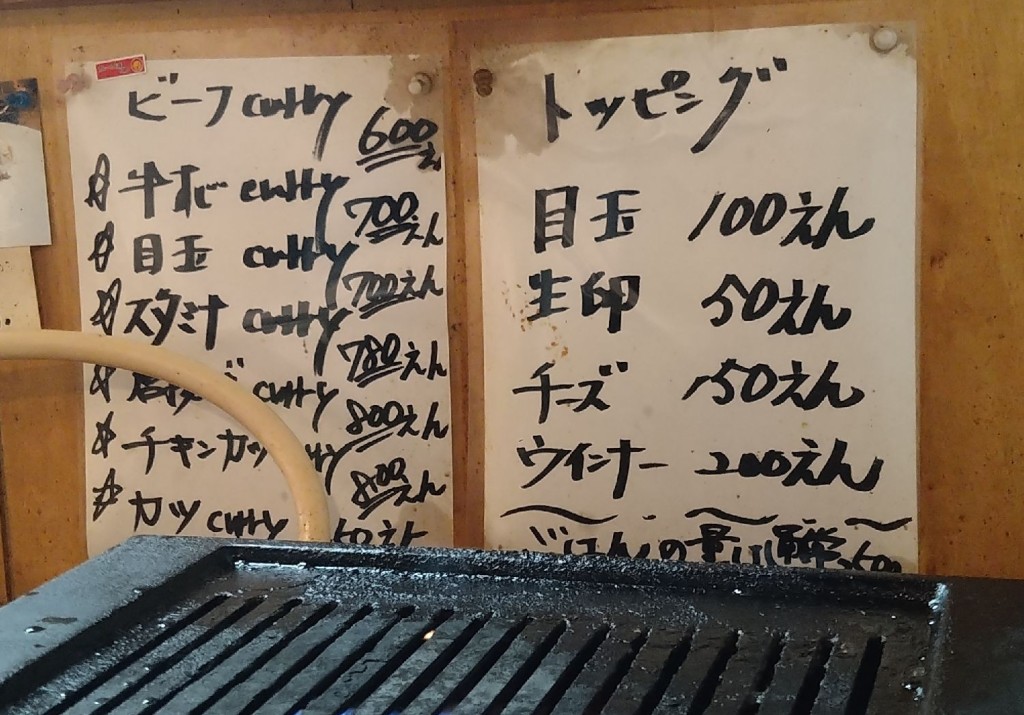 ビーフcurry 600えん
☆ 牛すじ curry 700えん
☆ 目玉 curry 700えん
☆ スタミナ curry 780えん
☆ curry 800えん
☆ チキンカツ 800えん
☆ カツ curry 50えん
トッピング
目玉 100えん
生卵 50えん
チーズ 150えん
ウインナー 200えん
ごはんの量